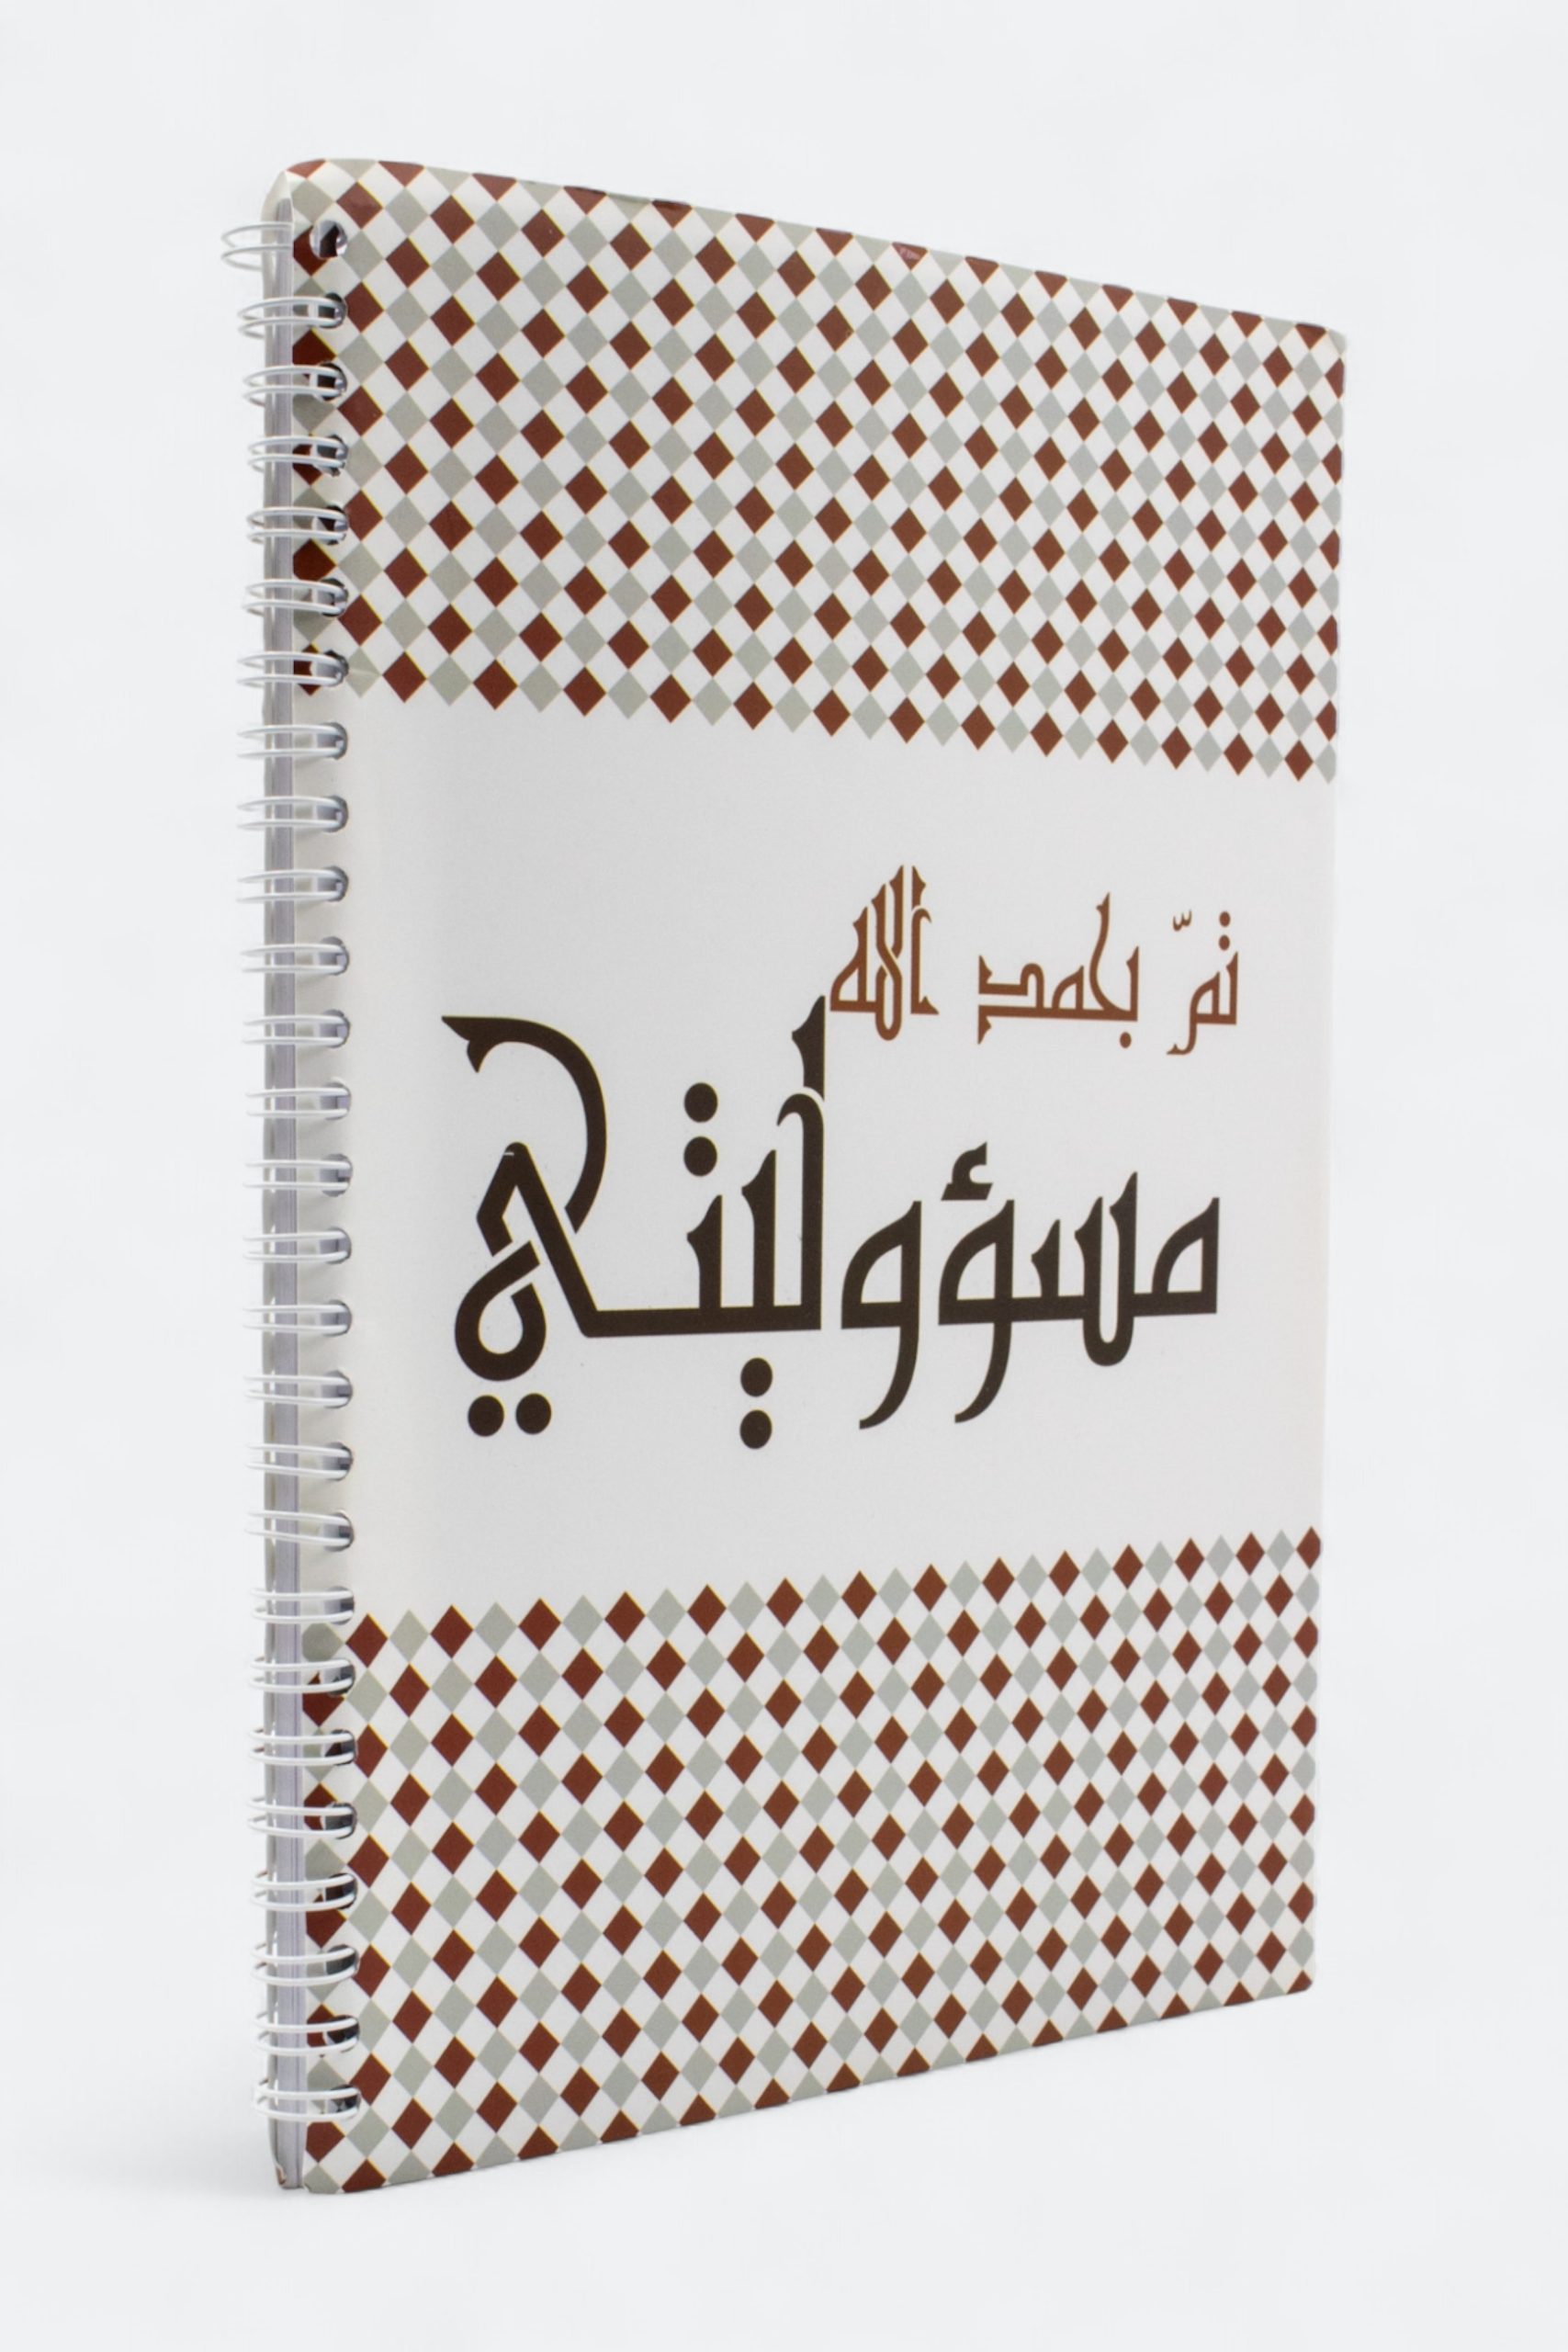 تمّ بحمد الله
مسؤوليتي